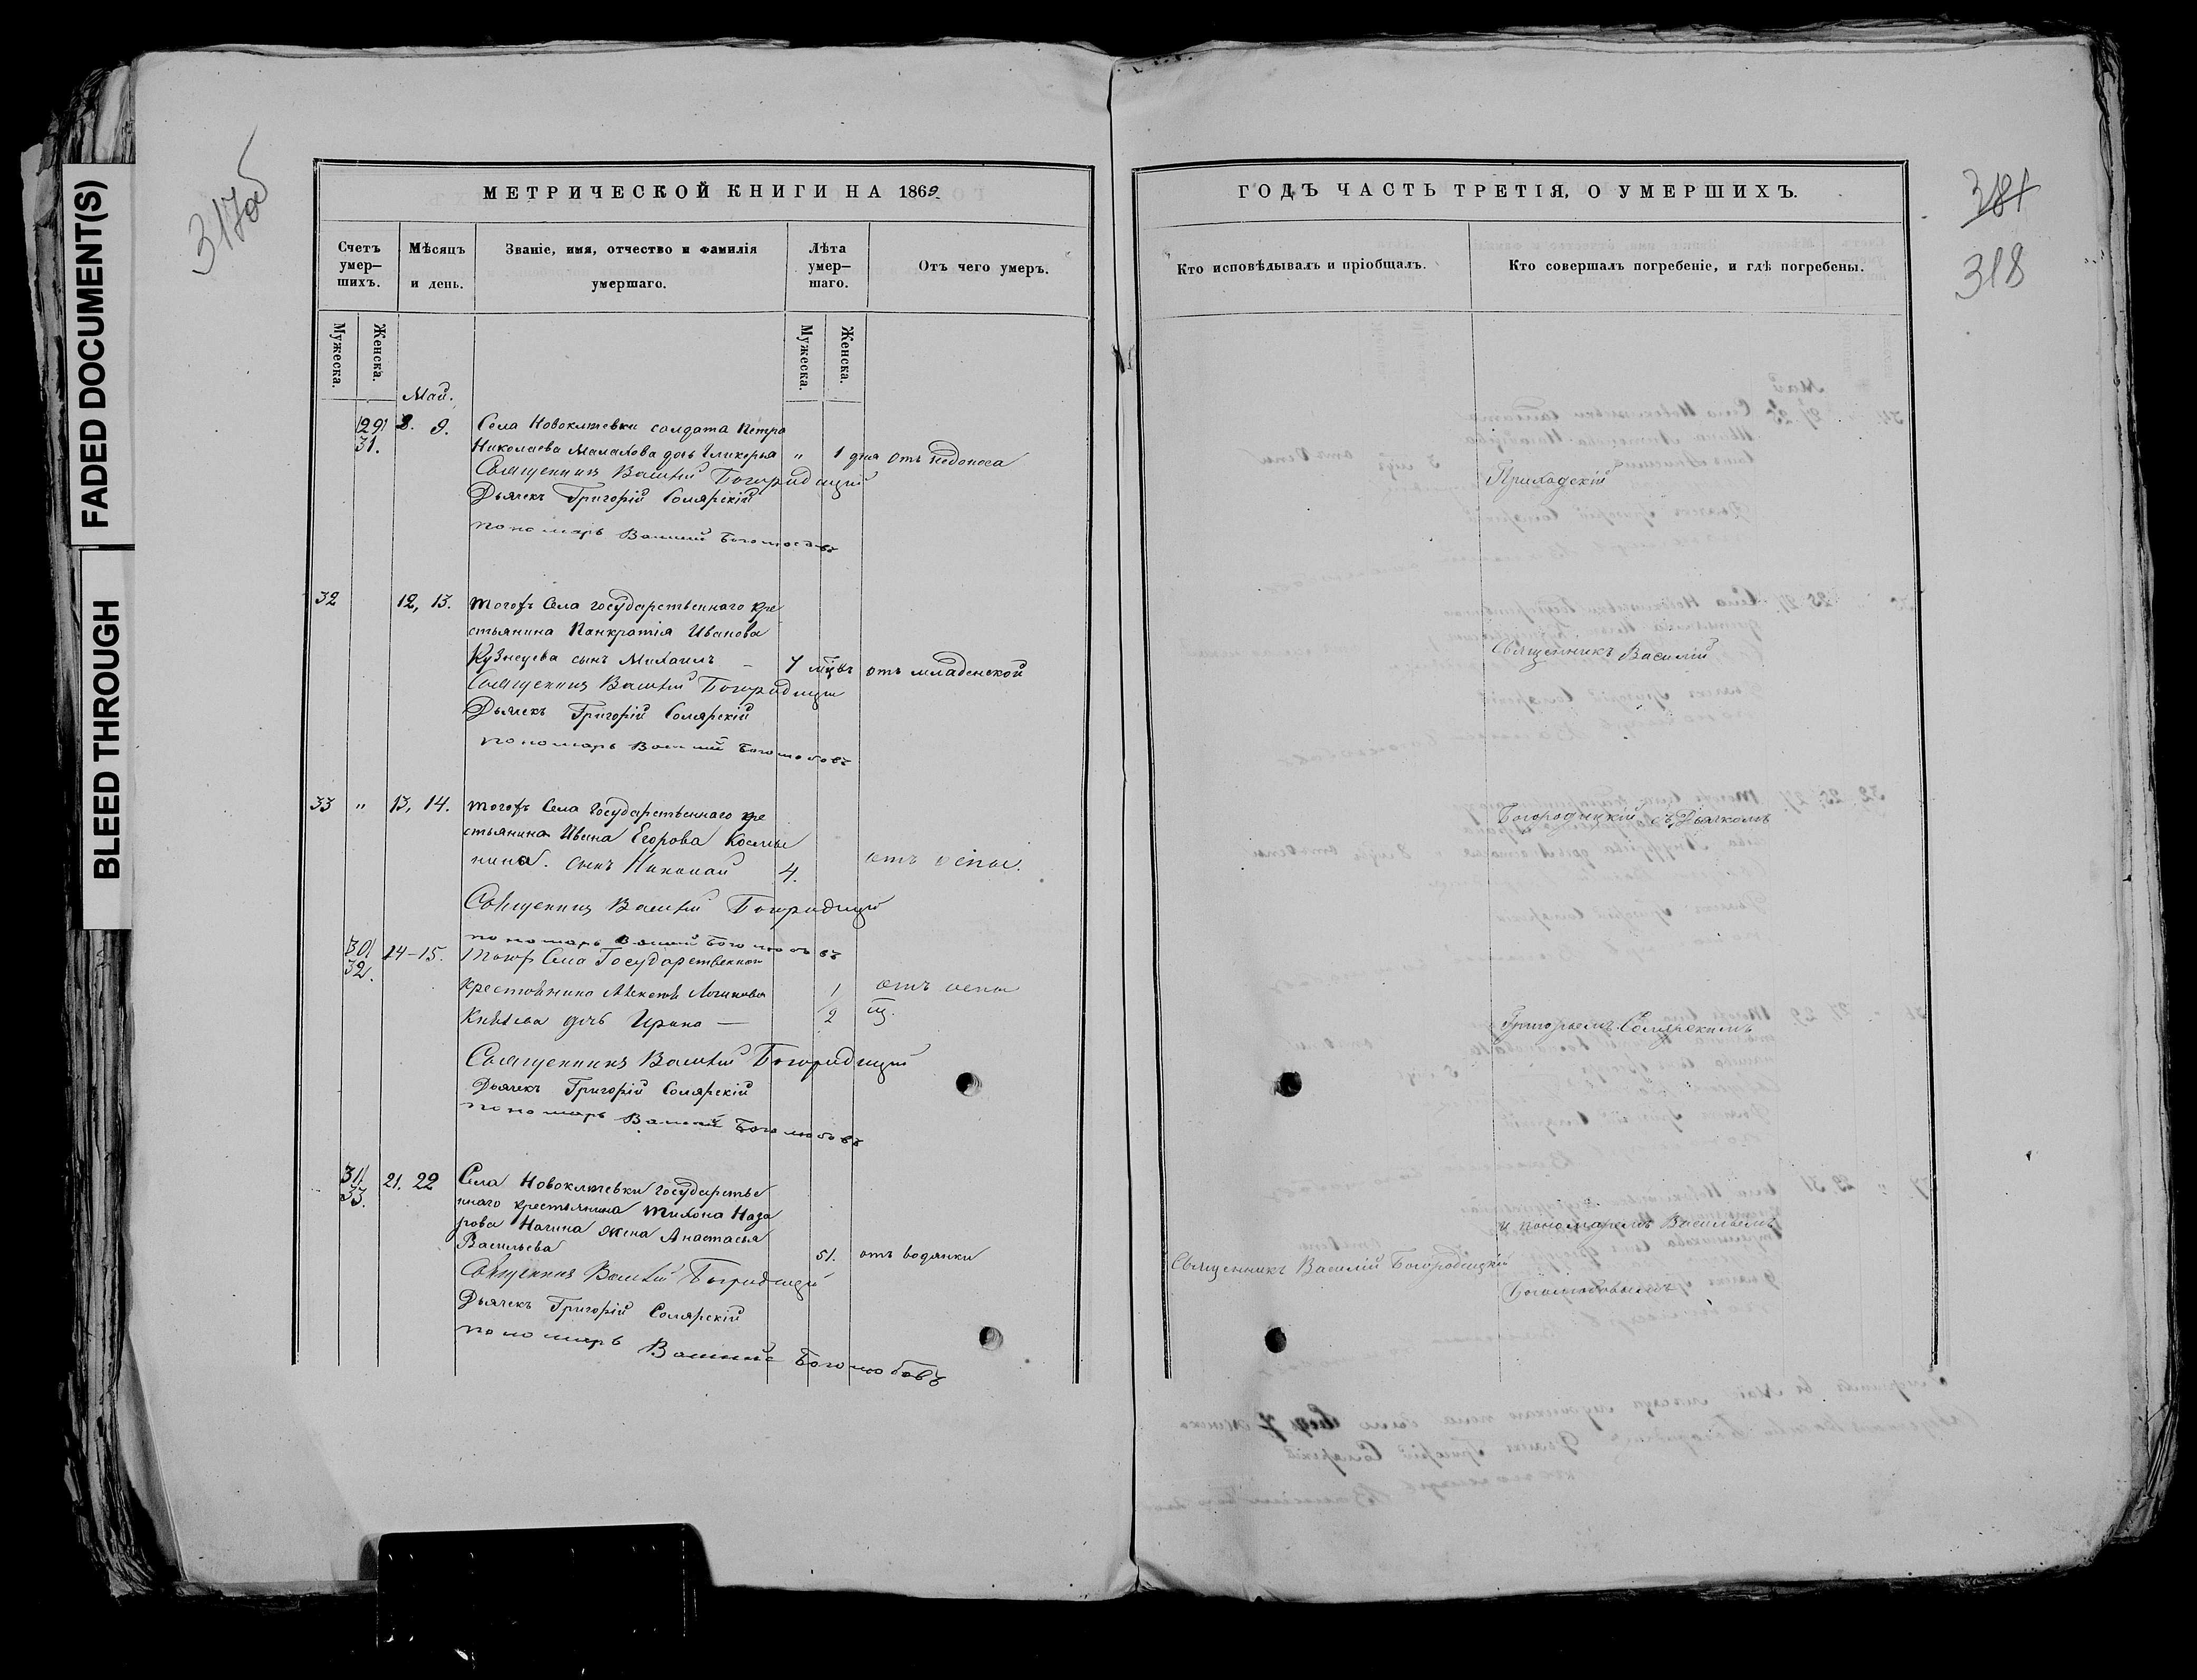 FADED DOCUMENT(S)
BLEED THROUGH
317об
МЕТРИЧЕСКОЙ КНИГИ НА 1869
Счетъ умер-шихъ.
Мѣсяцъ и день.
Званіе, имя, отчество и фамилія умершаго.
Лѣта умер-шаго.
Отъ чего умеръ.
Мужеска.
Женска.
Мужеска.
Женска.
Май.
29 8. 9. Села Новоключевки солдата Петра
31. Николаева Малахова дочь Гликерья " 1 дня отъ недоноса
Священникъ Василій Богородицкій
Дьячекъ Григорій Солярскій
пономарь Василій Боголюбовъ
32 12, 13. Тогожъ Села государственнаго кре
стьянина Панкратія Иванова
Кузнецова сынъ Михаилъ – 7 мцвъ отъ младенской
Священникъ Василій Богородицкій
Дьячекъ Григорій Солярскій
пономарь Василій Боголюбовъ
33 " 13, 14. Тогожъ Села государственнаго кре
стьянина Ивана Егорова
нина. сынъ Николай 4. отъ оспы.
Священникъ Василій Богородицкій
пономарь Василій Боголюбовъ
30 14-15. Тогож Села Государственнаго
32.
крестьянина Алексѣя Логинова 1 отъ оспы
Князева дочь Ирина — 2
Священникъ Василій Богородицкій
Дьячекъ Григорій Солярскій
пономарь Василій Боголюбовъ
31 21. 22 Села Новоключевки государстве
33. ннаго крестьянина Тихона Наза
рова жена Анастасья
Васильева 51. отъ водянки
Священникъ Василій Богородицкій
Дьячекъ Григорій Солярскій
пономарь Василий Боголюбовъ
ГОДЪ ЧАСТЬ ТРЕТІЯ, О УМЕРШИХЪ.
381
318
Кто исповѣдывалъ и пріобщалъ.
Кто совершалъ погребеніе, и гдѣ погребены.
Приходскій
Священникъ Василій
Богородицкій съ Дьячкомъ
Григорьемъ Солярскимъ
и пономаремъ Васильемъ
Священникъ Василій Богородицкій
Боголюбовымъ